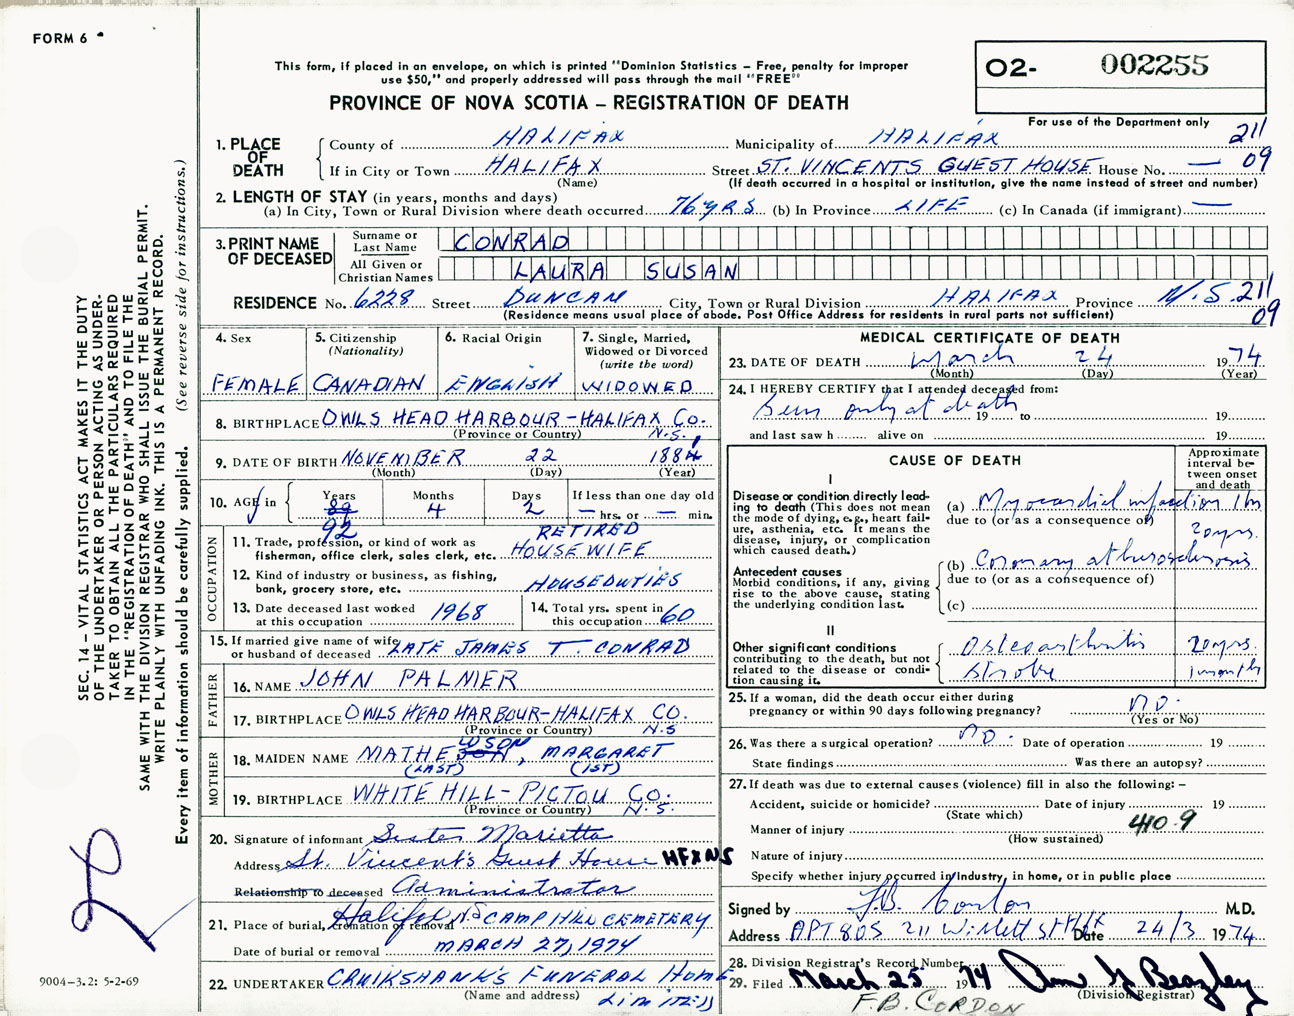 FORM 6
This form, if placed in an envelope, on which is printed "Dominion Statistics – Free, penalty for improper
use $50," and properly addressed will pass through the mail "FREE"
PROVINCE OF NOVA SCOTIA – REGISTRATION OF DEATH
O2- 002255
For use of the Department only
1. PLACE OF DEATH County of HALIFAX Municipality of HALIFAX 211
If in City or Town HALIFAX Street ST. VINCENTS GUEST HOUSE House No. — 09
(Name) (If death occurred in a hospital or institution, give the name instead of street and number)
2. LENGTH OF STAY (in years, months and days)
(a) In City, Town or Rural Division where death occurred 76 yRS (b) In Province LIFE (c) In Canada (if immigrant) —
3. PRINT NAME OF DECEASED Surname or Last Name CONRAD
All Given or Christian Names LAURA SUSAN
RESIDENCE No. 6228 Street DUNCAN City, Town or Rural Division HALIFAX Province N.S. 211
(Residence means usual place of abode. Post Office Address for residents in rural parts not sufficient) 09
4. Sex FEMALE
5. Citizenship (Nationality) CANADIAN
6. Racial Origin ENGLISH
7. Single, Married, Widowed or Divorced (write the word) WIDOWED
8. BIRTHPLACE OWLS HEAD HARBOUR – HALIFAX CO. N.S.
(Province or Country)
9. DATE OF BIRTH NOVEMBER 22 1884
(Month) (Day) (Year)
10. AGE in Years Months Days If less than one day old
89 92 4 2 — hrs. or — min.
OCCUPATION
11. Trade, profession, or kind of work as RETIRED
fisherman, office clerk, sales clerk, etc. HOUSEWIFE
12. Kind of industry or business, as fishing,
bank, grocery store, etc. HOUSEDUTIES
13. Date deceased last worked at this occupation 1968
14. Total yrs. spent in this occupation 60
15. If married give name of wife or husband of deceased LATE JAMES T. CONRAD
FATHER
16. NAME JOHN PALMER
17. BIRTHPLACE OWLS HEAD HARBOUR – HALIFAX CO.
(Province or Country) N.S
MOTHER
18. MAIDEN NAME MATHESON WSON, MARGARET
(LAST) (1ST)
19. BIRTHPLACE WHITE HILL – PICTOU CO.
(Province or Country) N.S.
20. Signature of informant Sister Marietta
Address St. Vincent's Guest House HFX NS
Relationship to deceased Administrator
21. Place of burial, cremation or removal Halifax N.S CAMP HILL CEMETERY
Date of burial or removal MARCH 27, 1974
22. UNDERTAKER CRUIKSHANK'S FUNERAL HOME
(Name and address) LIMITED
MEDICAL CERTIFICATE OF DEATH
23. DATE OF DEATH March 24 1974
(Month) (Day) (Year)
24. I HEREBY CERTIFY that I attended deceased from:
Seen only at death 19 to 19
and last saw h alive on 19
CAUSE OF DEATH
Approximate interval between onset and death
I
Disease or condition directly leading to death (This does not mean the mode of dying, e.g., heart failure, asthenia, etc. It means the disease, injury, or complication which caused death.)
(a) Myocardial infarction 1 hr
due to (or as a consequence of)
20 yrs.
Antecedent causes
Morbid conditions, if any, giving rise to the above cause, stating the underlying condition last.
(b) Coronary atherosclerosis
due to (or as a consequence of)
(c)
II
Other significant conditions contributing to the death, but not related to the disease or condition causing it.
Osteoarthritis 20 yrs.
Stroke 1 month
25. If a woman, did the death occur either during
pregnancy or within 90 days following pregnancy? no.
(Yes or No)
26. Was there a surgical operation? no. Date of operation 19
State findings Was there an autopsy?
27. If death was due to external causes (violence) fill in also the following: –
Accident, suicide or homicide? Date of injury 19
(State which)
Manner of injury 410.9
(How sustained)
Nature of injury
Specify whether injury occurred in industry, in home, or in public place
Signed by F.B. Cordon M.D.
Address APT 805 211 Willett St Hfx Date 24/3 1974
28. Division Registrar's Record Number
29. Filed March 25 1974
(Division Registrar)
F.B. CORDON
SEC. 14 – VITAL STATISTICS ACT MAKES IT THE DUTY
OF THE UNDERTAKER OR PERSON ACTING AS UNDER-
TAKER TO OBTAIN ALL THE PARTICULARS REQUIRED
IN THE "REGISTRATION OF DEATH" AND TO FILE THE
SAME WITH THE DIVISION REGISTRAR WHO SHALL ISSUE THE BURIAL PERMIT.
WRITE PLAINLY WITH UNFADING INK. THIS IS A PERMANENT RECORD.
Every item of information should be carefully supplied. (See reverse side for instructions.)
9004–3.2: 5-2-69